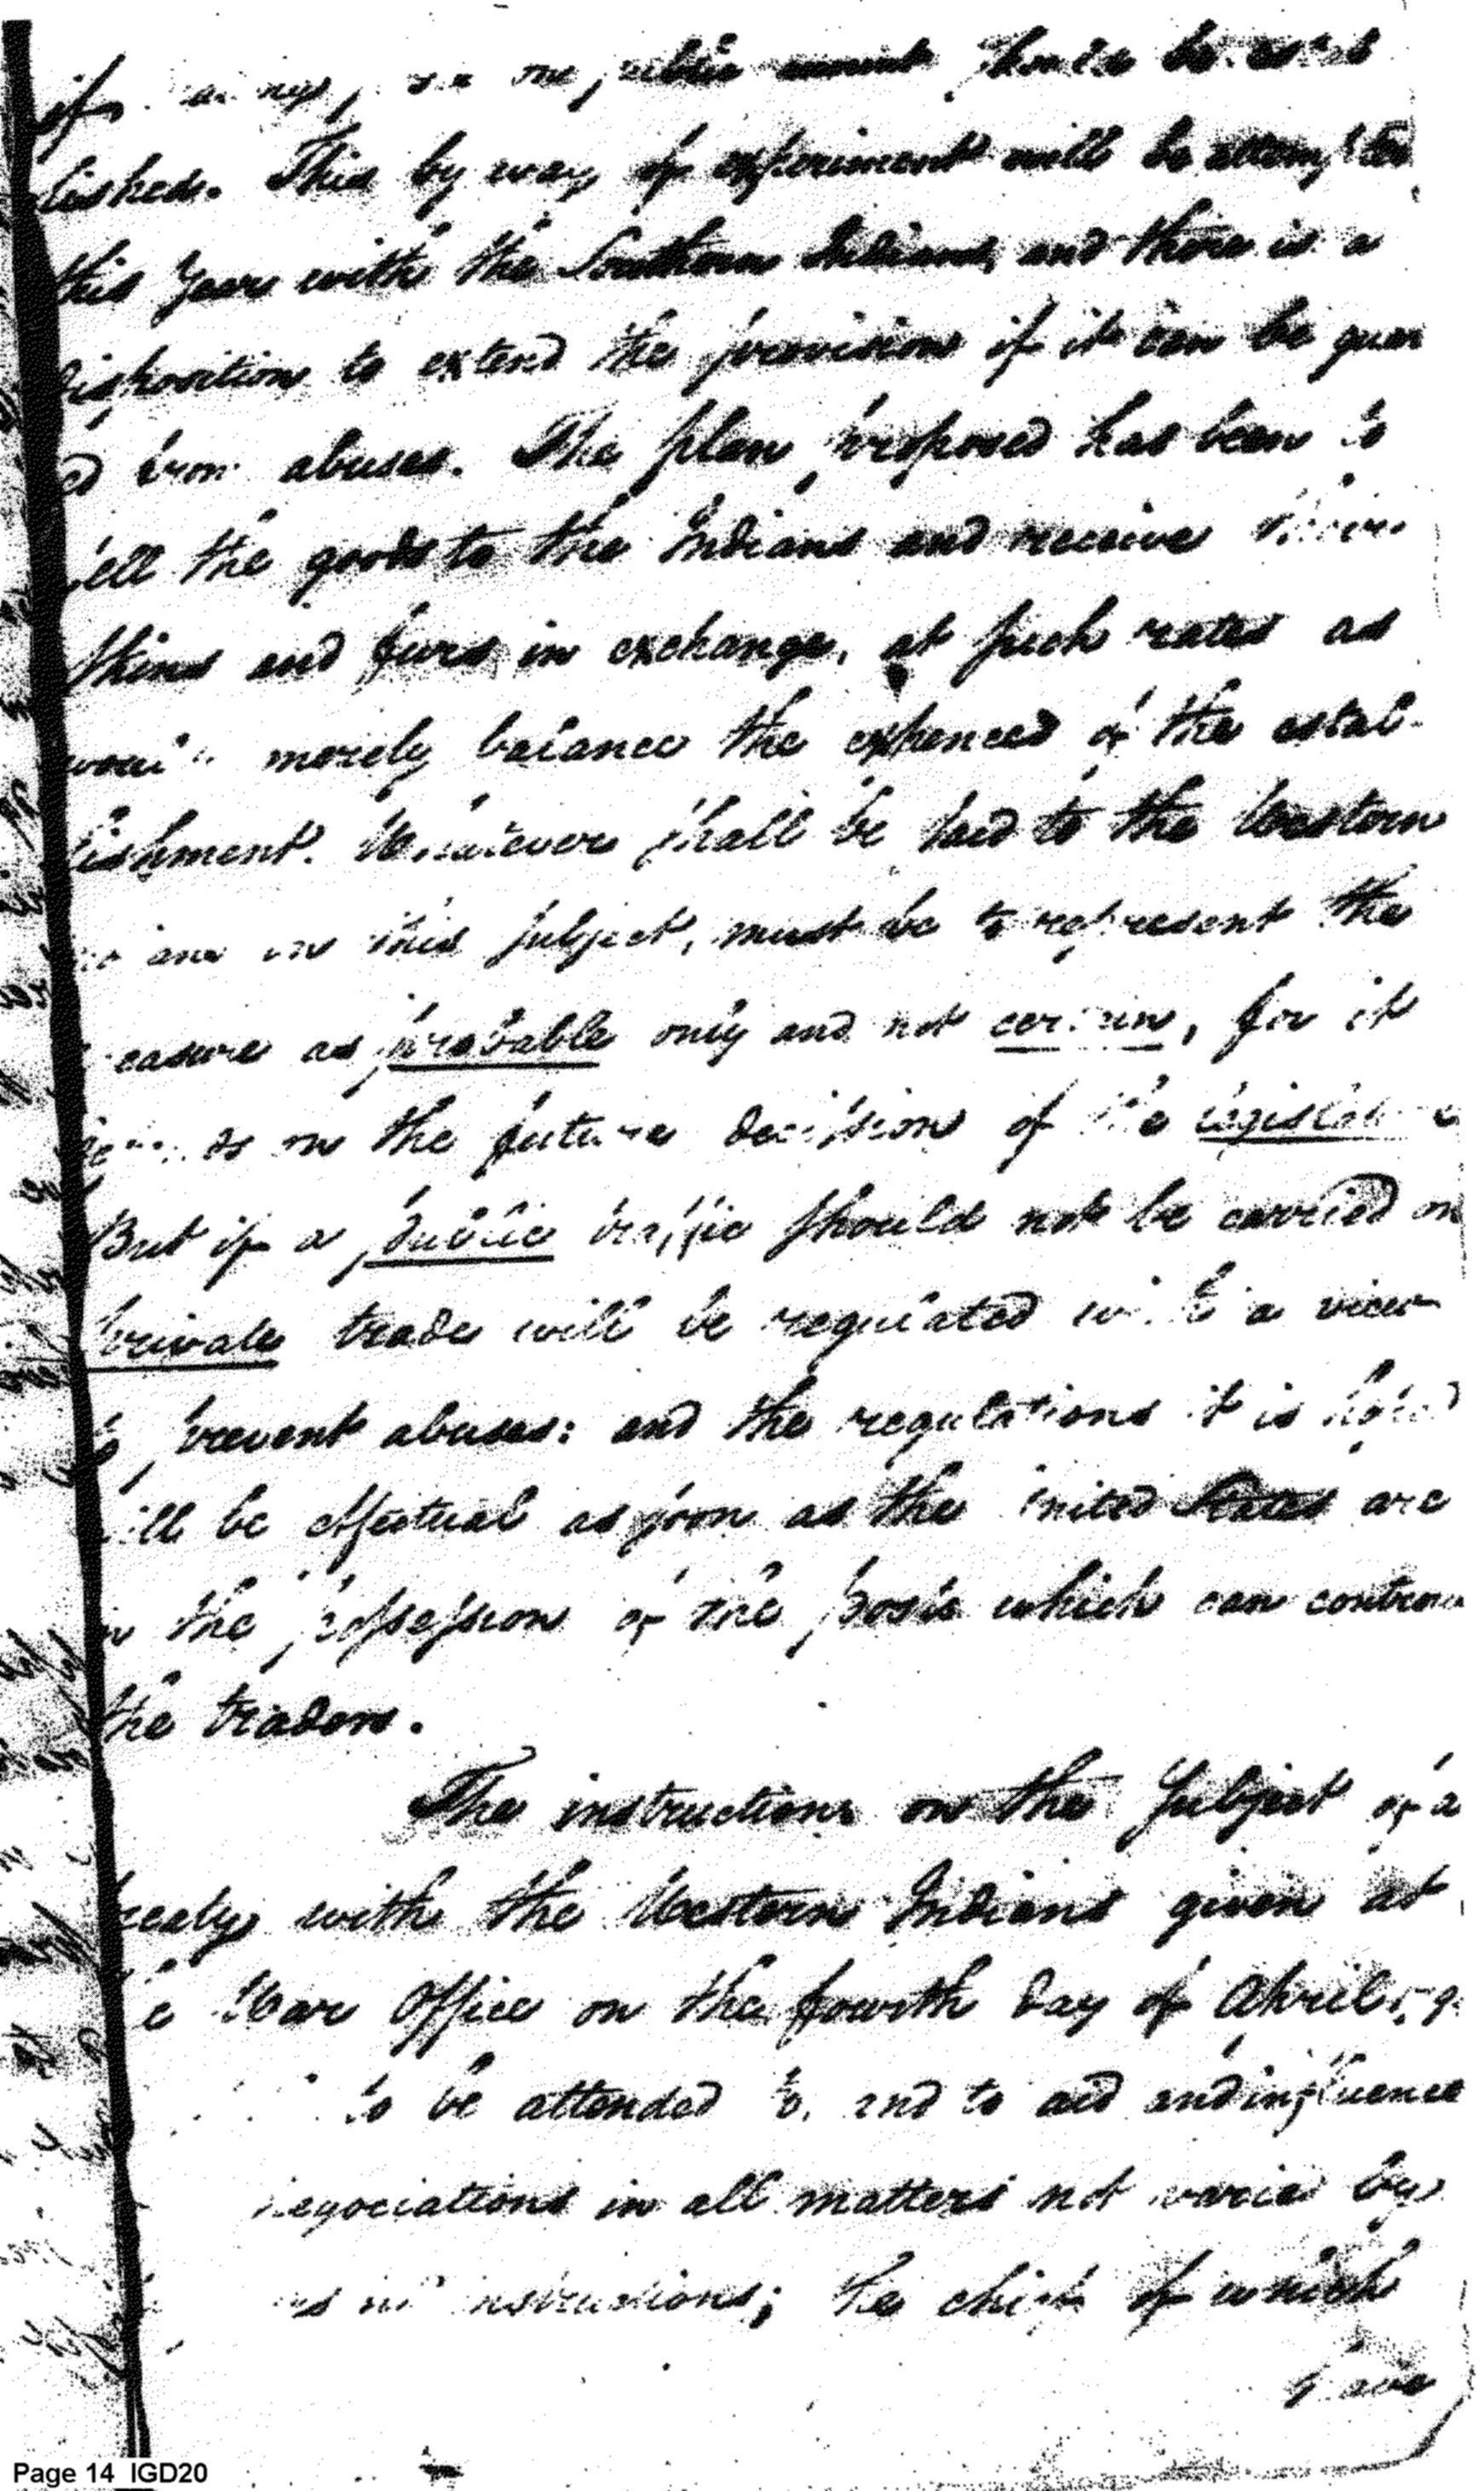 if public should be estab
lished. This by way of experiment will be attempted
this Year with the Southern Indians, and there is a
disposition to extend the provision if it can be guar
ed from abuses. The plan proposed has been to
sell the goods to the Indians and receive their
skins and furs in exchange, at such rates as
would merely balance the expences of the estab-
lishment. Whatever shall be said to the Western
on this subject, must be to represent the
measure as probable only and not certain, for it
depends on the future decision of the legislature
But if a public traffic should not be carried on
private trade will be regulated with a view
to prevent abuses: and the regulations it is hoped
will be effectual as soon as the United States are
in the possession of the posts which can controul
the traders.
The instructions on the Subject of a
treaty with the Western Indians given at
the War Office on the fourth day of April
to be attended to, and to aid and influence
negociations in all matters not varied by
instructions; the chief of which
have
Page 14 IGD20